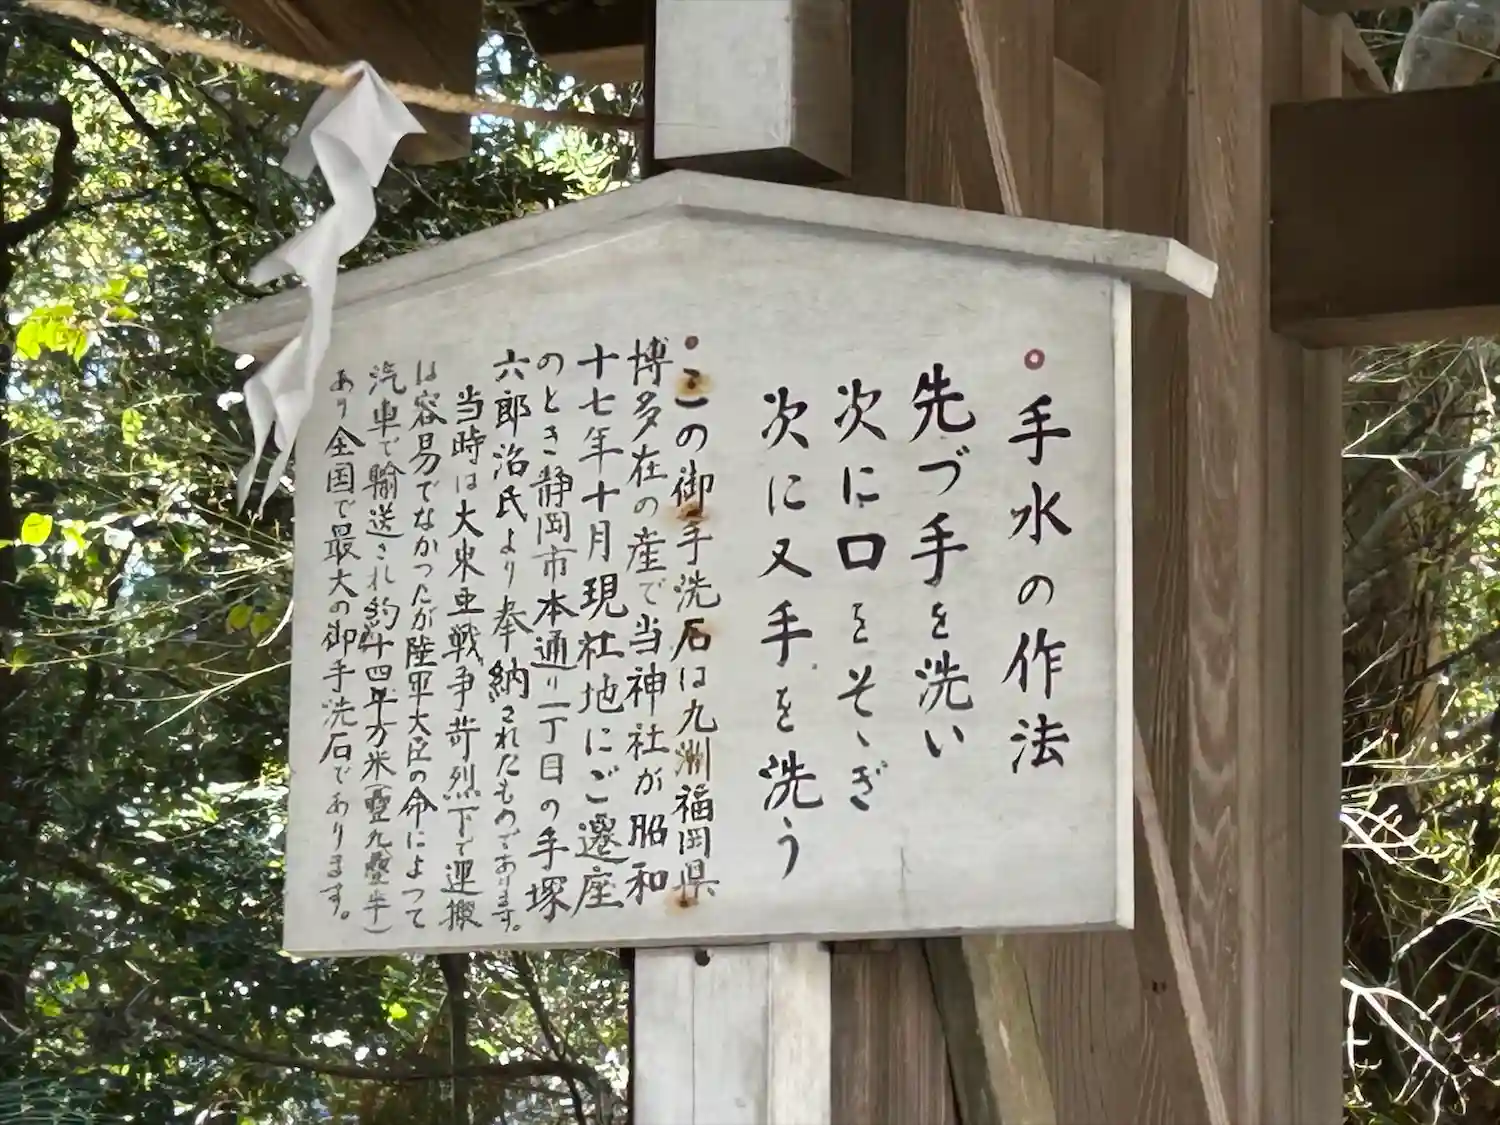 手水の作法
先づ手を洗い
次に口をそゝぎ
次に又手を洗う
この御手洗石は九洲福岡県
博多在の産で当神社が昭和
十七年十月現社地にご遷座
のとき静岡市本通り一丁目の手塚
六郎治氏より奉納されたものであります。
当時は大東亜戦争苛烈下で運搬
は容易でなかったが陸軍大臣の命によって
汽車で輸送され約十四平方米(畳九畳半)
あり全国で最大の御手洗石であります。